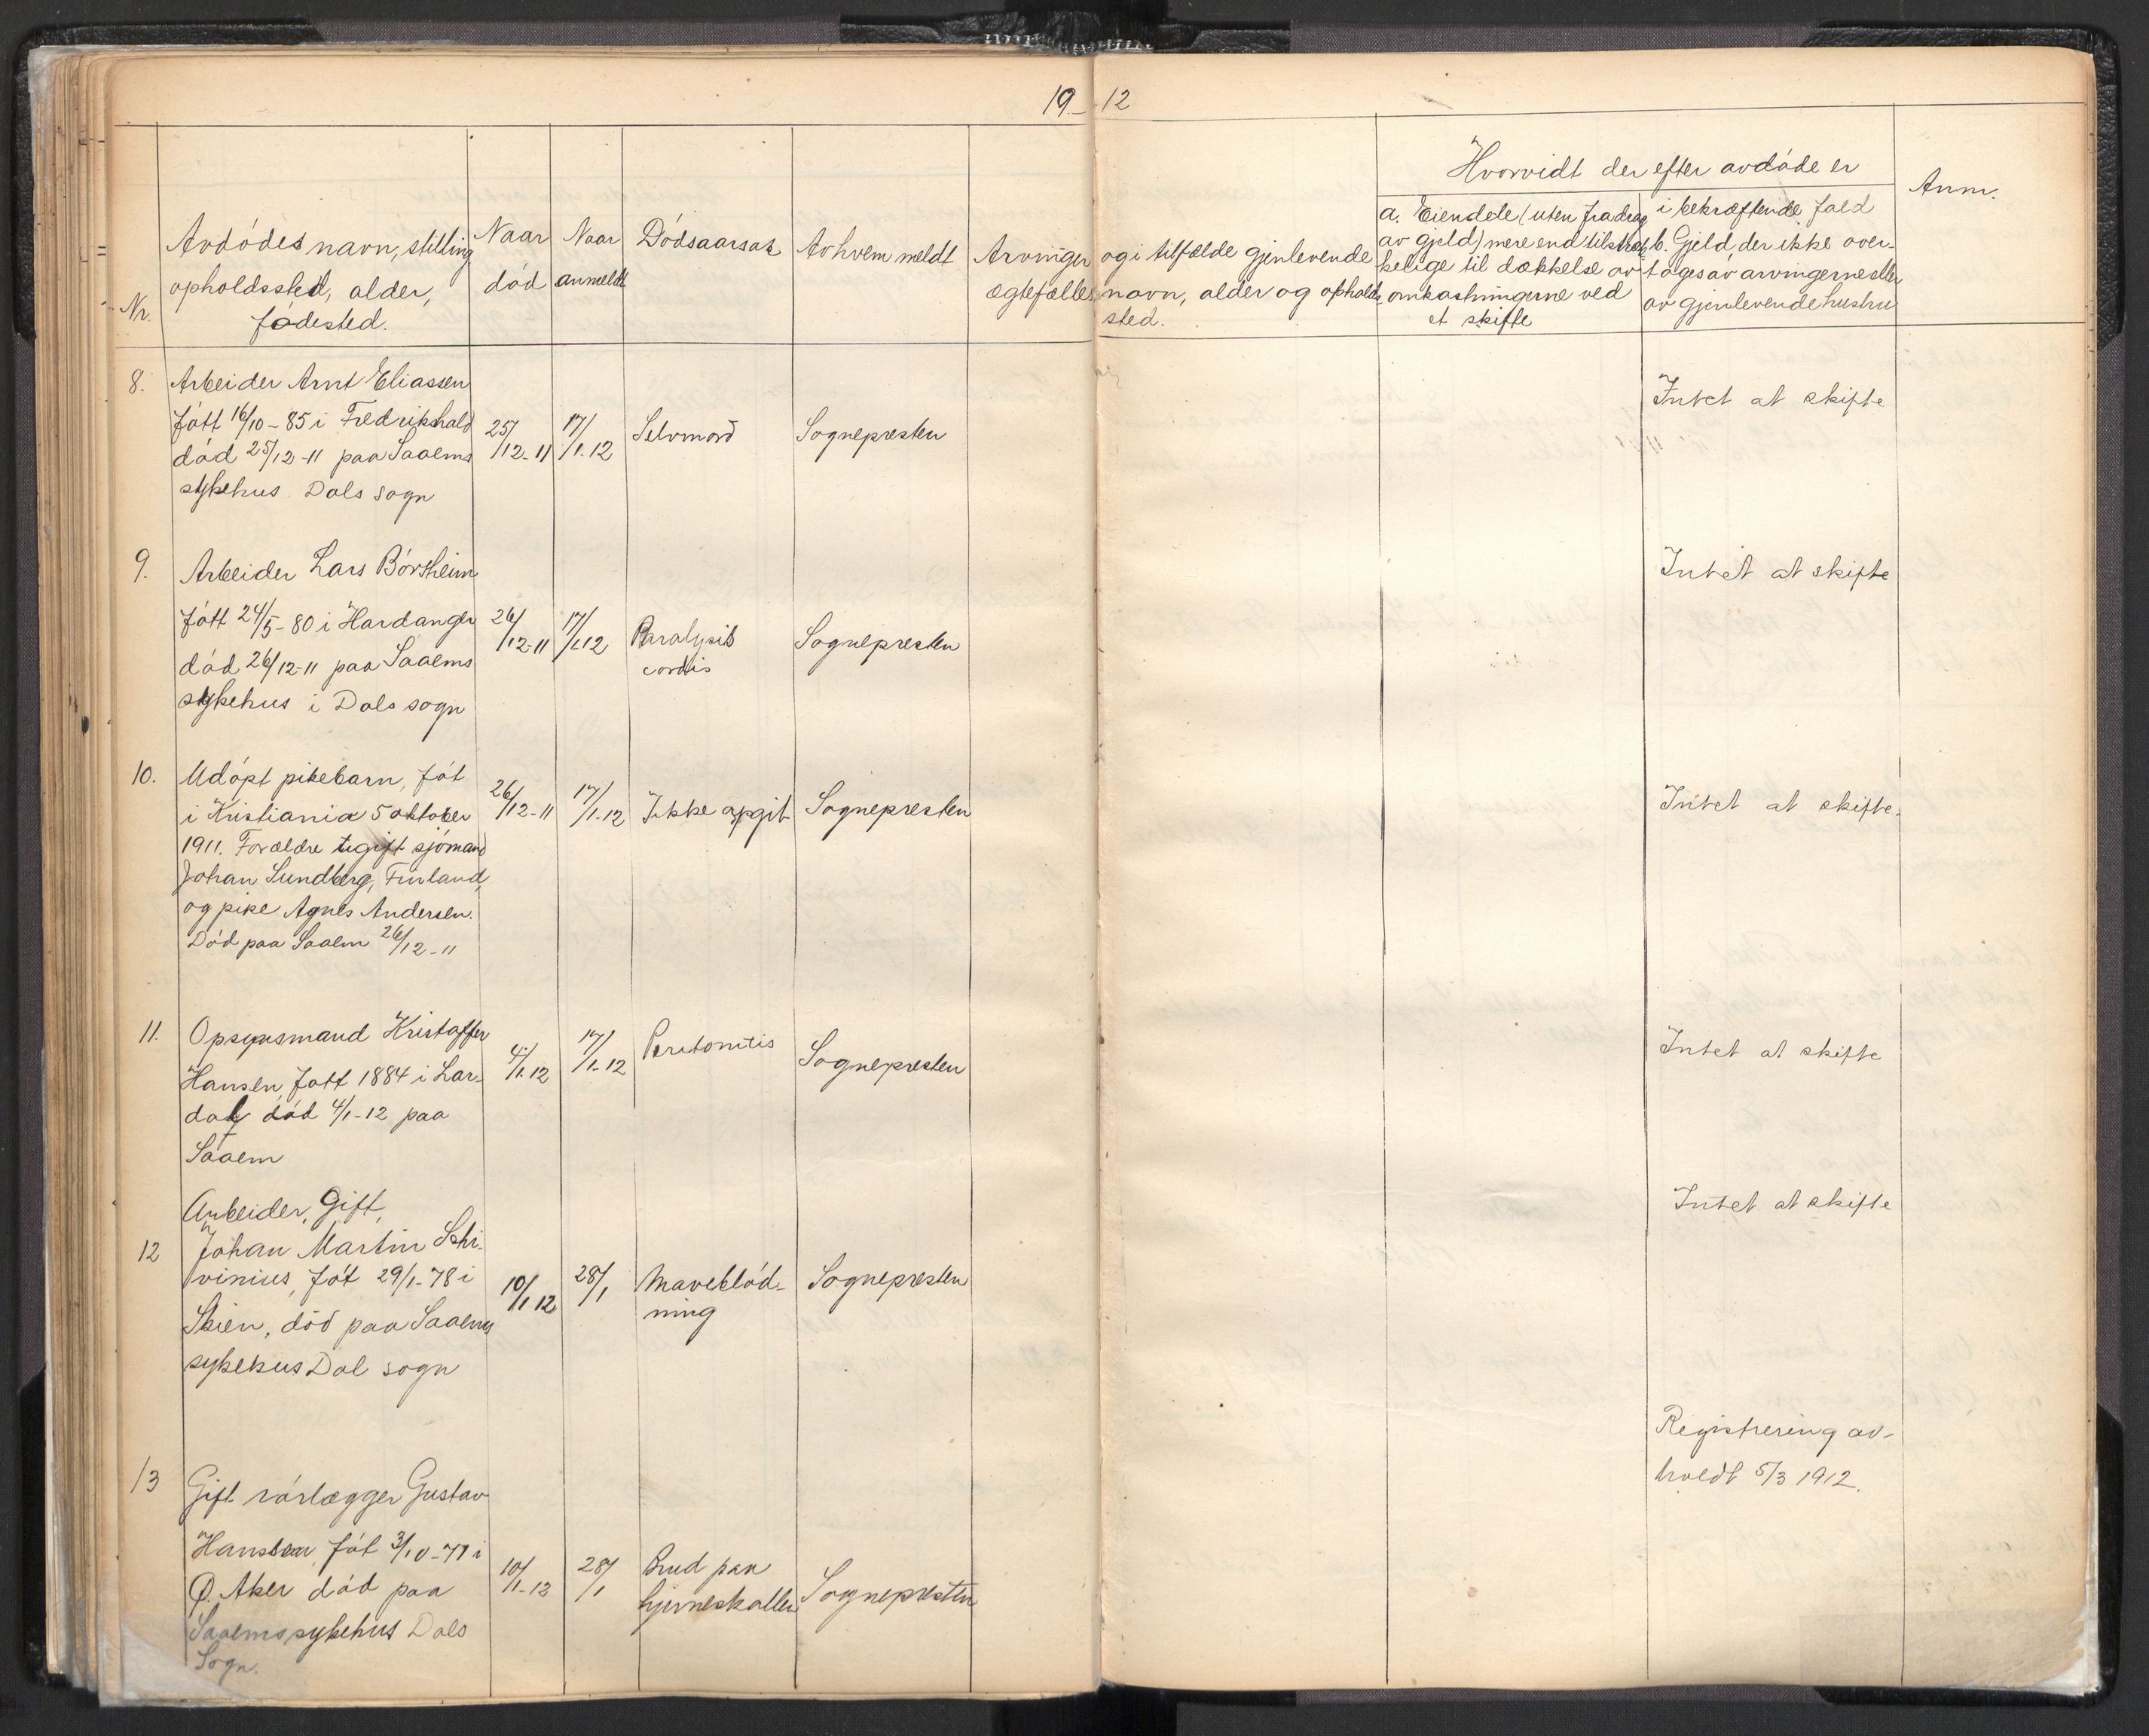 19 - 12
Nr.
Avdödes navn, stilling
opholdssted, alder,
födested.
Naar
död
Naar
anmeldt
Dödsaarsak
Av hvem meldt
Arvinger og i tilfælde gjenlevende
ægtefælles navn, alder og opholds
sted.
Hvorvidt der efter avdöde er
a. Eiendele (uten fradrag
av gjeld) mere end tilstræk
kelige til dækkelse av
omkostningerne ved
et skifte
i bekræftende fald
b. Gjeld, der ikke over-
tages av arvingerne eller
av gjenlevende hustru
Anm.
8.
Arbeider Arnt Eliassen
fött 16/10-85 i Fredrikshald
död 25/12-11 paa Saaems
sykehus Dals sogn
25/12-11
17/1.12
Selvmord
Sognepresten
Intet at skifte
9.
Arbeider Lars Börsheim
fött 24/5-80 i Hardanger
död 26/12-11 paa Saaems
sykehus i Dals sogn
26/12-11
17/1.12
Paralysis
cordis
Sognepresten
Intet at skifte
10.
Udöpt pikebarn, föt
i Kristiania 5 oktober
1911. Forældre ugift sjömand
Johan Lundberg, Finland,
og pike Agnes Andersen.
Död paa Saaem 26/12-11
26/12-11
17/1-12
Ikke opgit
Sognepresten
Intet at skifte.
11.
Opsynsmand Kristoffer
Hansen, fött 1884 i Lar-
dal, död 4/1-12 paa
Saaem
4/1.12
17/1-12
Peritonitis
Sognepresten
Intet at skifte
12
Arbeider, Gift,
Johan Martin Schi-
vinius, föt 29/1-78 i
Skien, död paa Saaems
sykehus Dal sogn
10/1 12
28/1
Maveblöd-
ning
Sognepresten
Intet at skifte
13
Gift rörlægger Gustav
Hansen, föt 3/10-71 i
Ö. Aker död paa
Saaems sykehus Dals
Sogn.
10/1-12
28/1
Brud paa
hjerneskallen
Sognepresten
Registrering av-
holdt 5/3 1912.